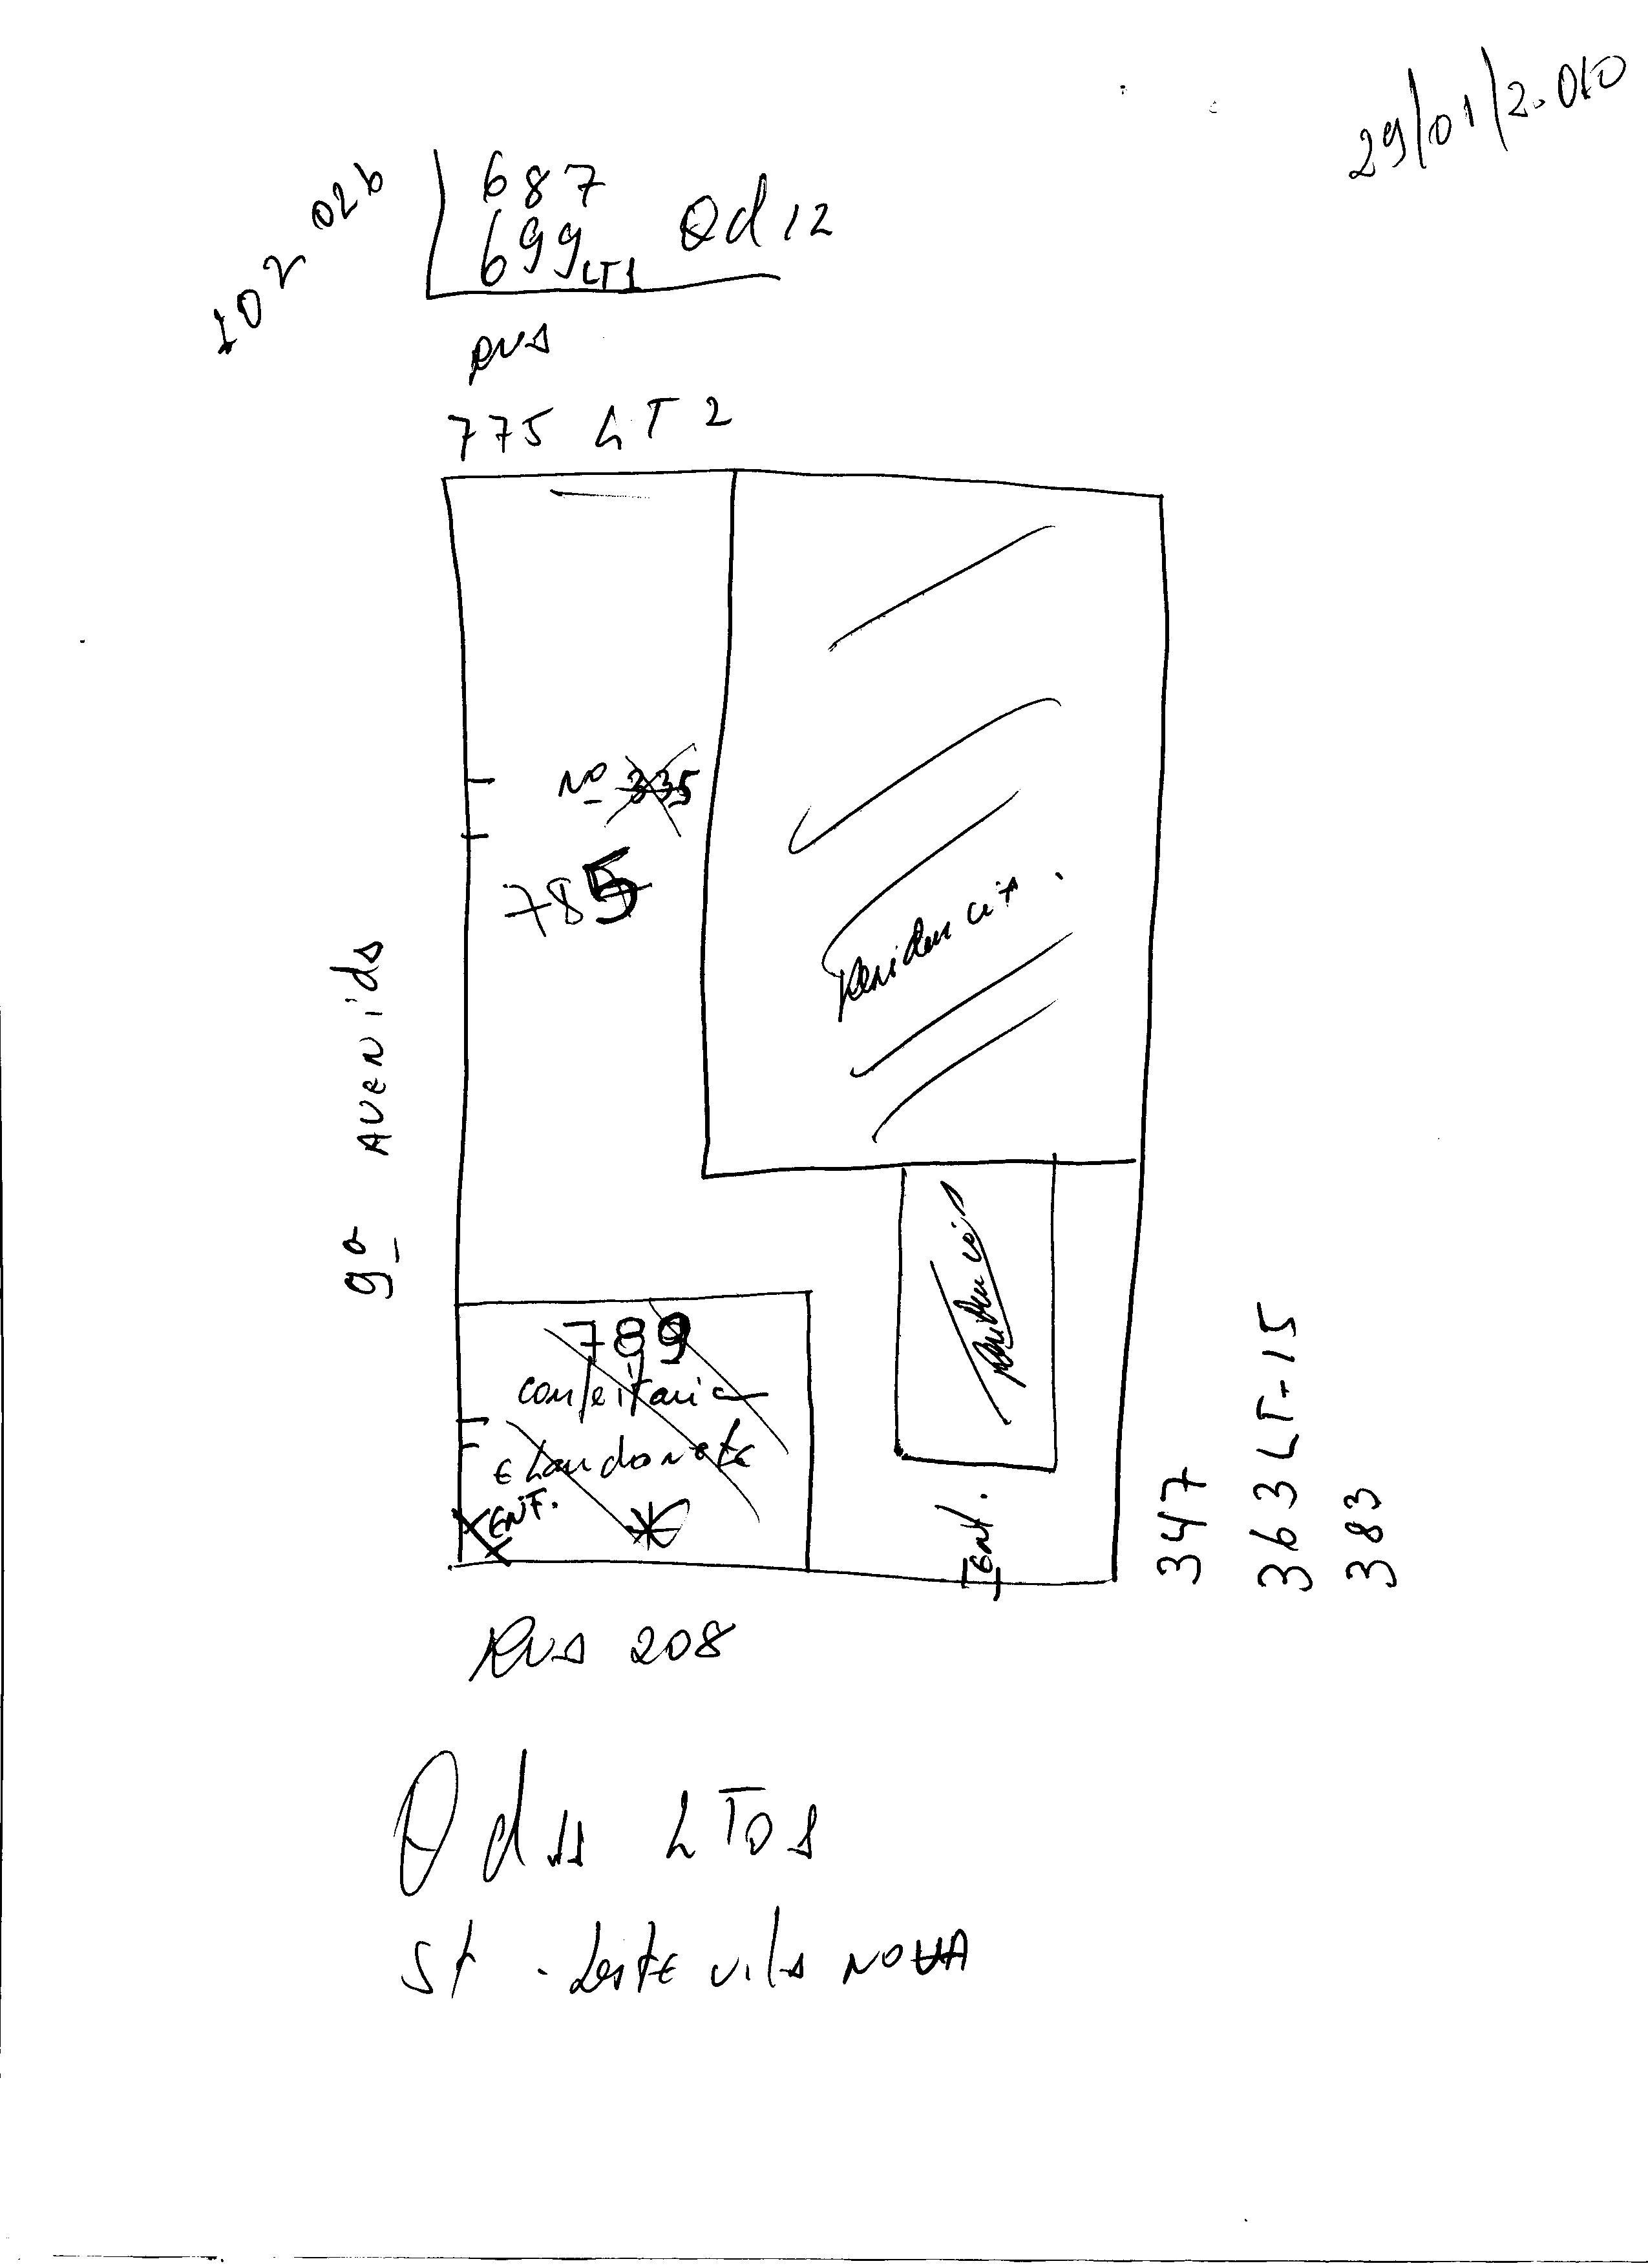 29/01/2.010
102 026
687
699 LT1 Qd 12
RUA
775 LT 2
Nº 335
785
Residencia.
9ª AVENIDA
Residencia
789
confeitaria
e Lanchonete
ENT.
Ent.
347
363 LT-15
383
RUA 208
Qd 11 LT 01
St. Leste vila NOVA